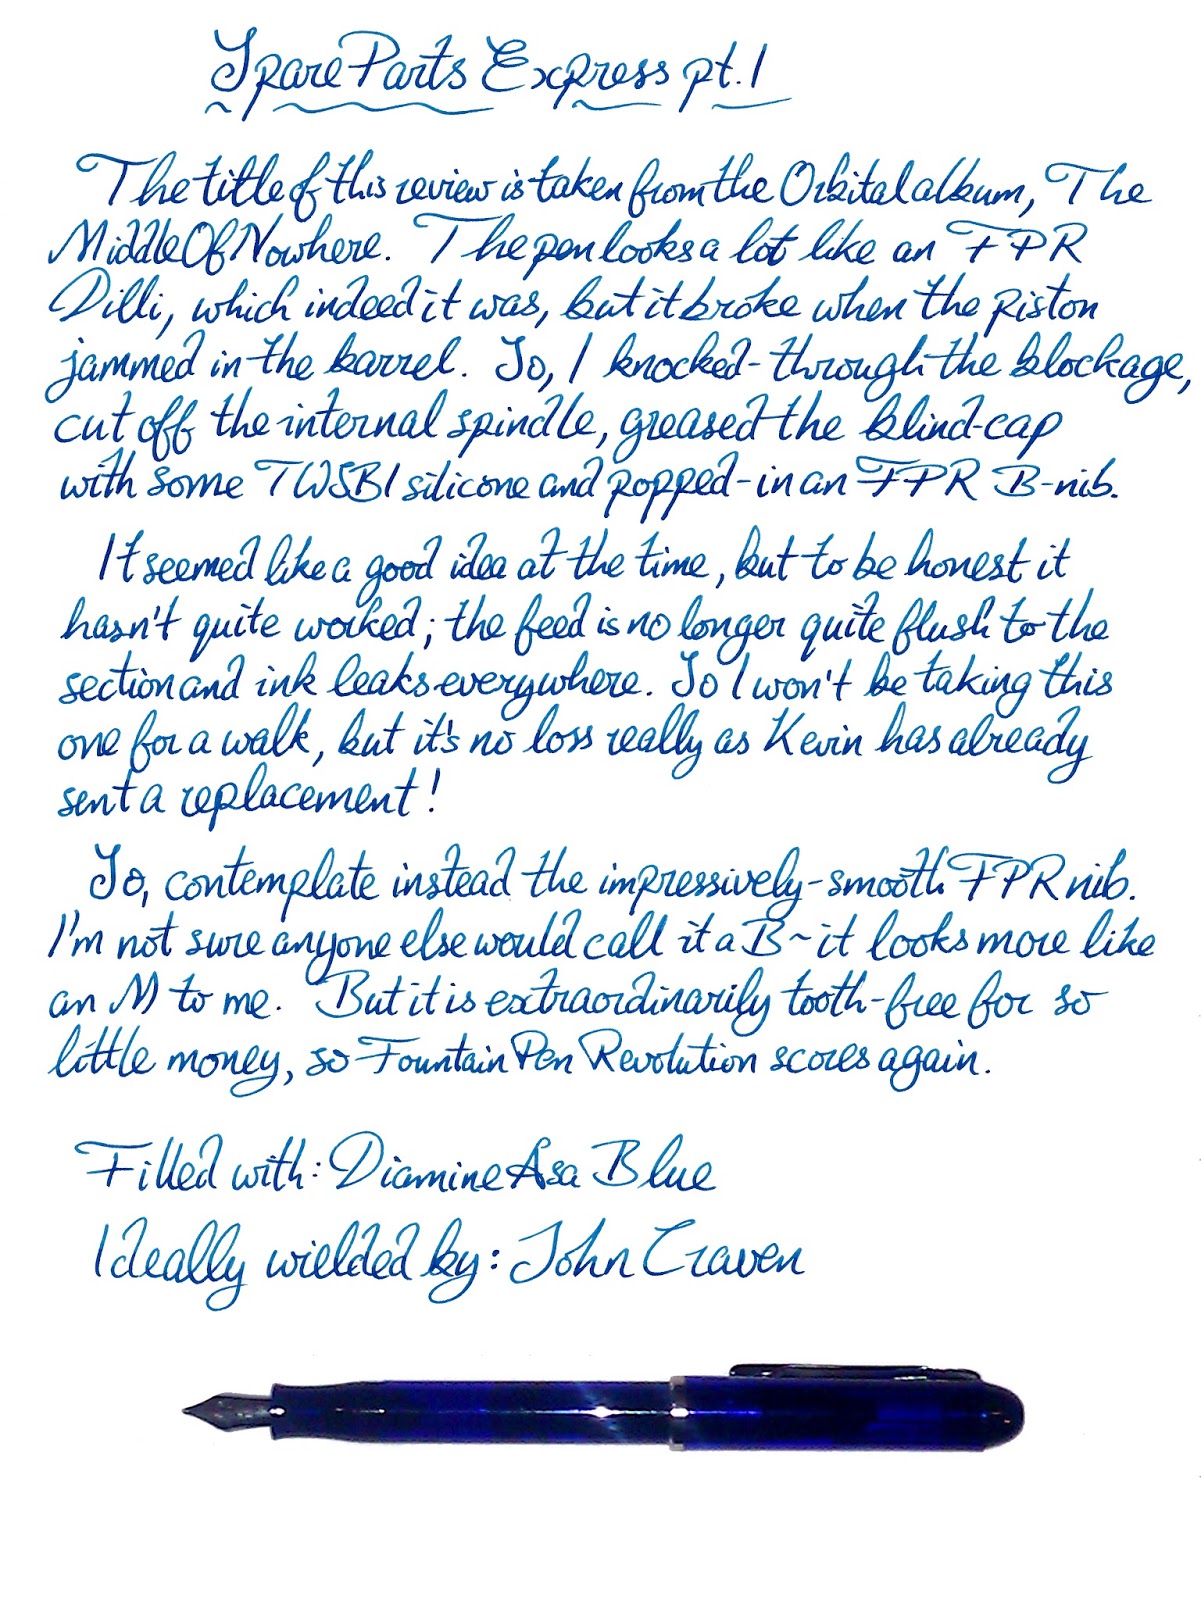 Spare Parts Express pt.1
The title of this review is taken from the Orbital album, The
Middle Of Nowhere. The pen looks a lot like an FPR
Dilli, which indeed it was, but it broke when the piston
jammed in the barrel. So, I knocked-through the blockage,
cut off the internal spindle, greased the blind-cap
with some TWSBI silicone and popped-in an FPR B-nib.
It seemed like a good idea at the time, but to be honest it
hasn't quite worked; the feed is no longer quite flush to the
section and ink leaks everywhere. So I won't be taking this
one for a walk, but it's no loss really as Kevin has already
sent a replacement!
So, contemplate instead the impressively-smooth FPR nib.
I'm not sure anyone else would call it a B~it looks more like
an M to me. But it is extraordinarily tooth-free for so
little money, so Fountain Pen Revolution scores again.
Filled with: Diamine Asa Blue
Ideally wielded by: John Craven